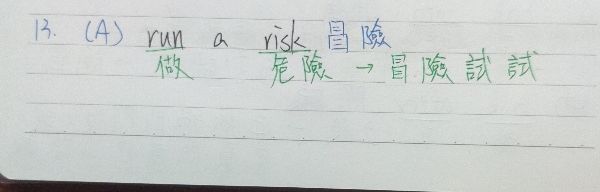 13. (A) run a risk 冒險
做 危險 → 冒險試試